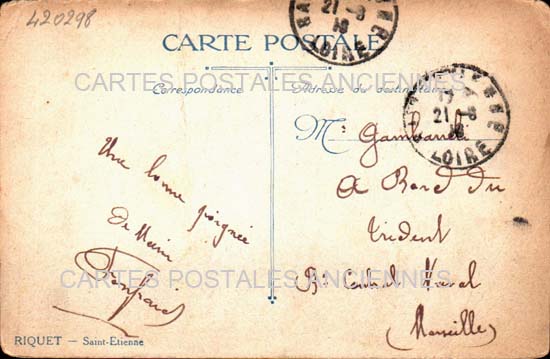 420298
CARTE POSTALE
CARTES POSTALES ANCIENNES
Correspondance
Adresse du destinataire
21-8
LOIRE
21-8
LOIRE
Mr
Une bonne poignée
De Main
A Bord du
Trident
Bau Central Naval
(Marseille)
CARTES POSTALES ANCIENNES
RIQUET — Saint-Etienne